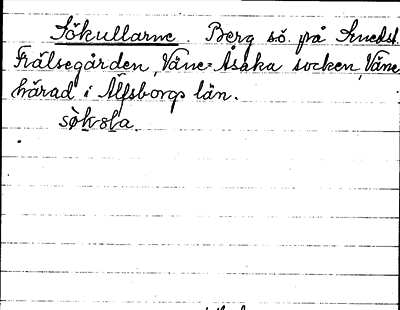 Sökullarne. Berg sö. på
Frälsegården, Väne-Åsaka socken, Väne
härad i Älfsborgs län.